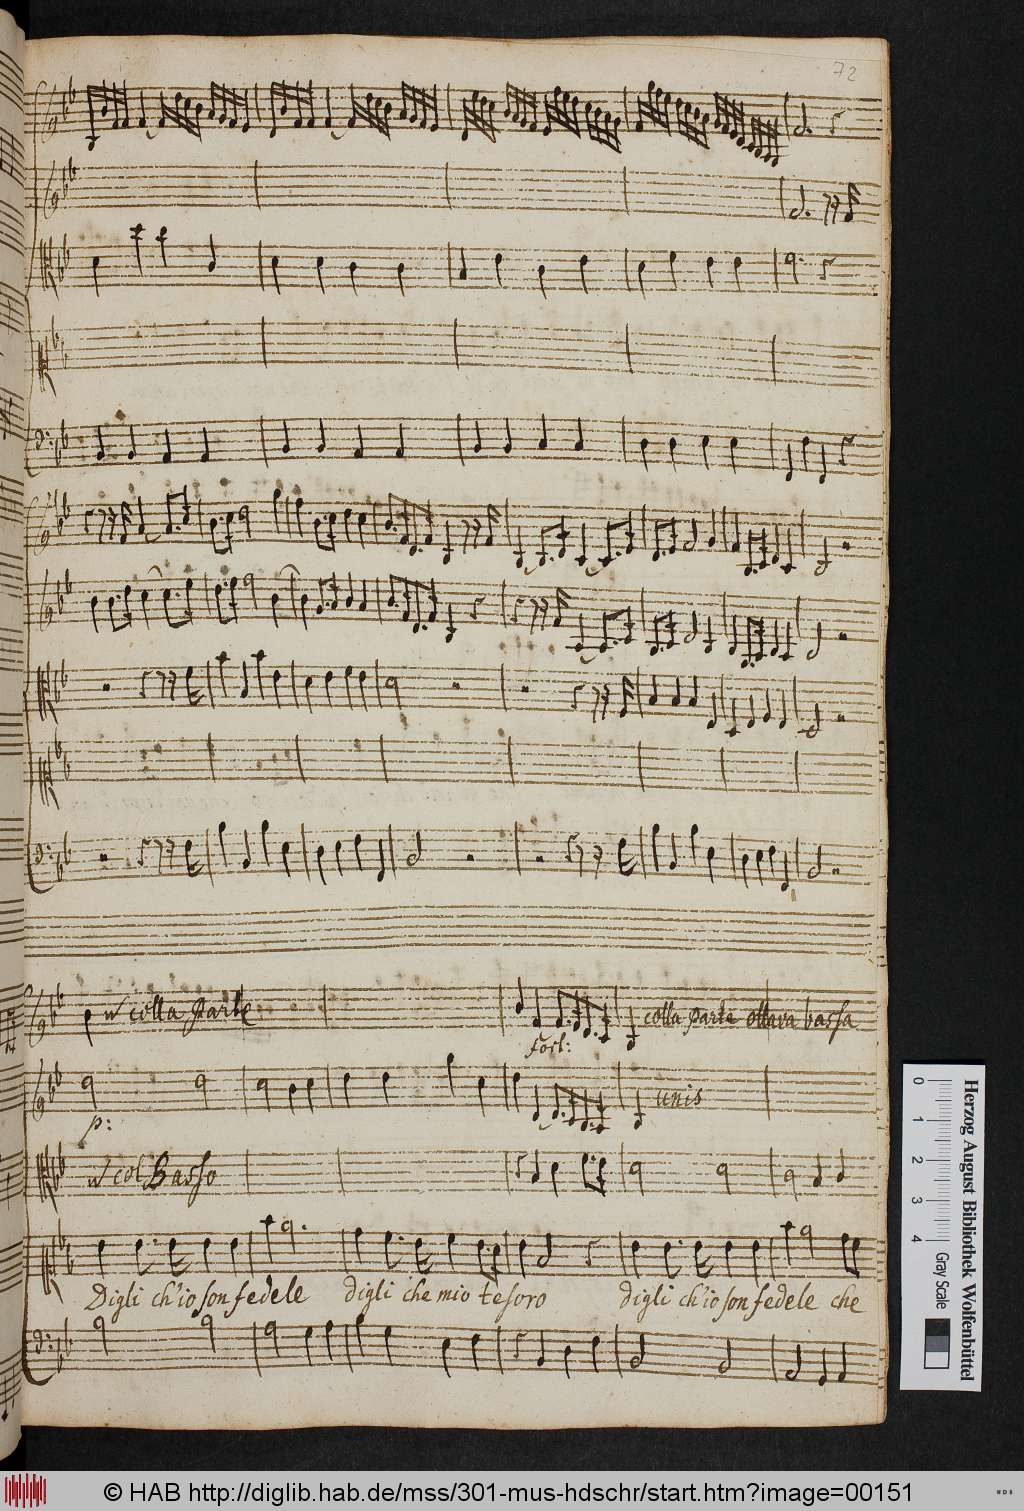 72
colla Parte
fort:
colla parte ottava bassa
p:
unis
col Basso
Digli ch'io son fedele digli che mio tesoro digli ch'io son fedele che
Herzog August Bibliothek Wolfenbüttel
0 1 2 3 4 Gray Scale
© HAB http://diglib.hab.de/mss/301-mus-hdschr/start.htm?image=00151
WDB